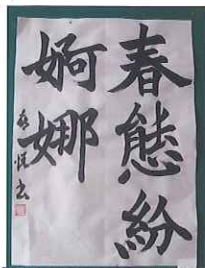 春態紛
婀娜